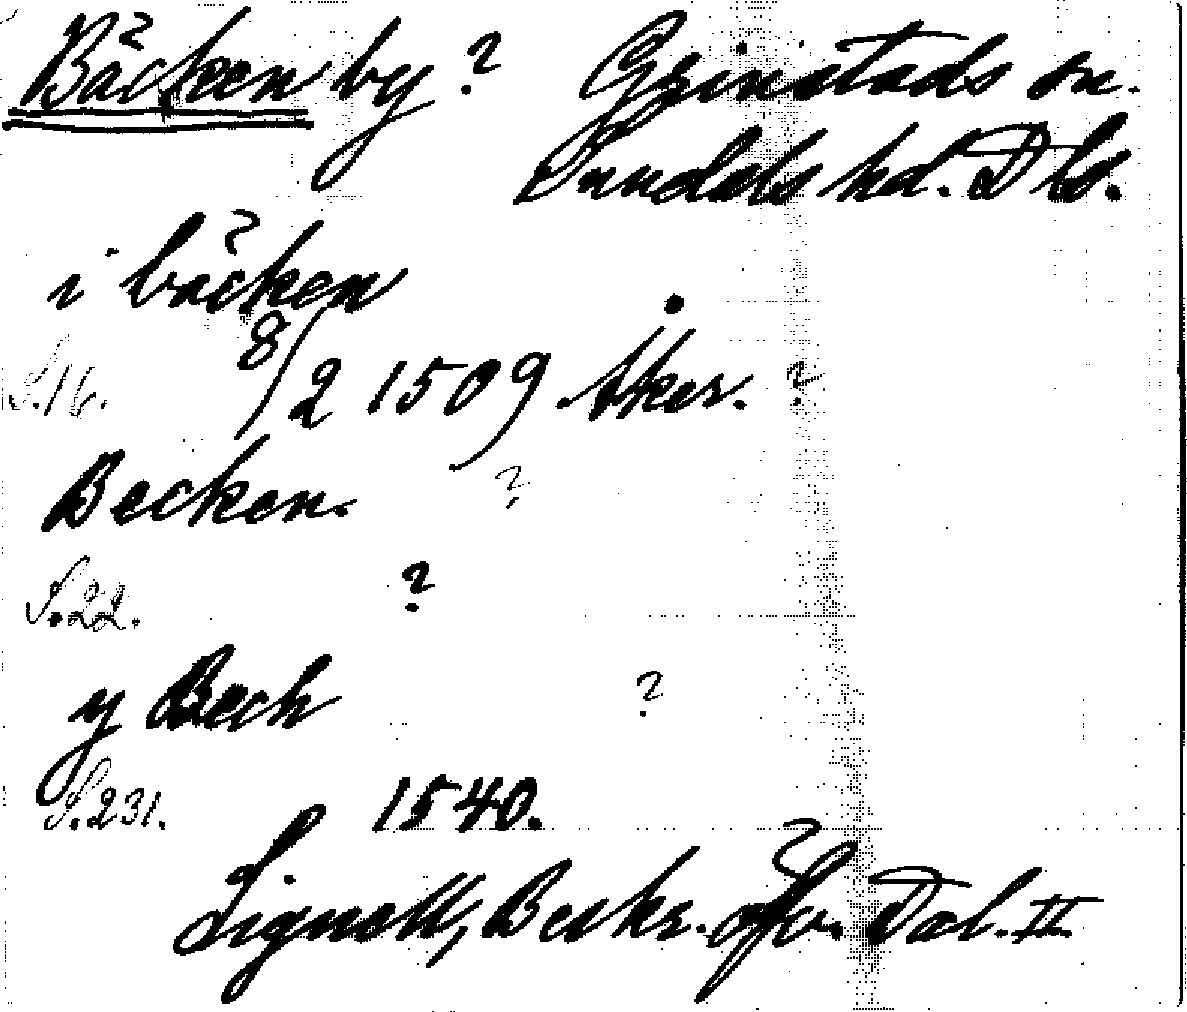 Bäcken by? Grinstads sn.
Sundals hd. Dls.
i bäcken
S.16. 8/2 1509 Åker. ?
Becken. ?
S.22. ?
y Bech ?
S.231. 1540.
Lignell, Beskr. öfv. Dal. II